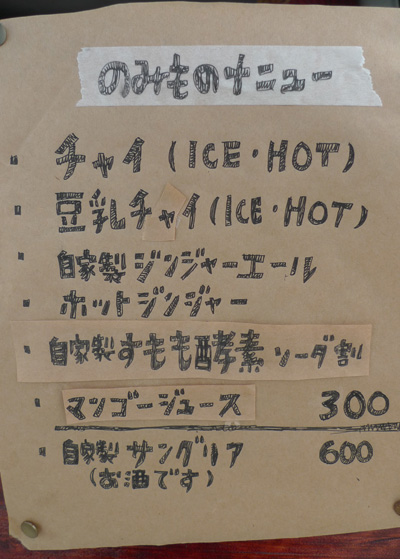 のみものメニュー
・チャイ(ICE・HOT)
・豆乳チャイ(ICE・HOT)
・自家製ジンジャーエール
・ホットジンジャー
・自家製すもも酵素ソーダ割
・マンゴージュース 300
・自家製サングリア 600
(お酒です)